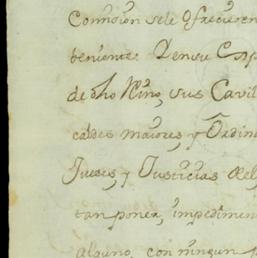 Comision se le ofrecieren
teniente. Denise Csp
de dho Rno, sus Cavil
caldes maiores, y Ordin
Jueses, y Justicias del
tan poner, impedimen
alguno, con ningun p